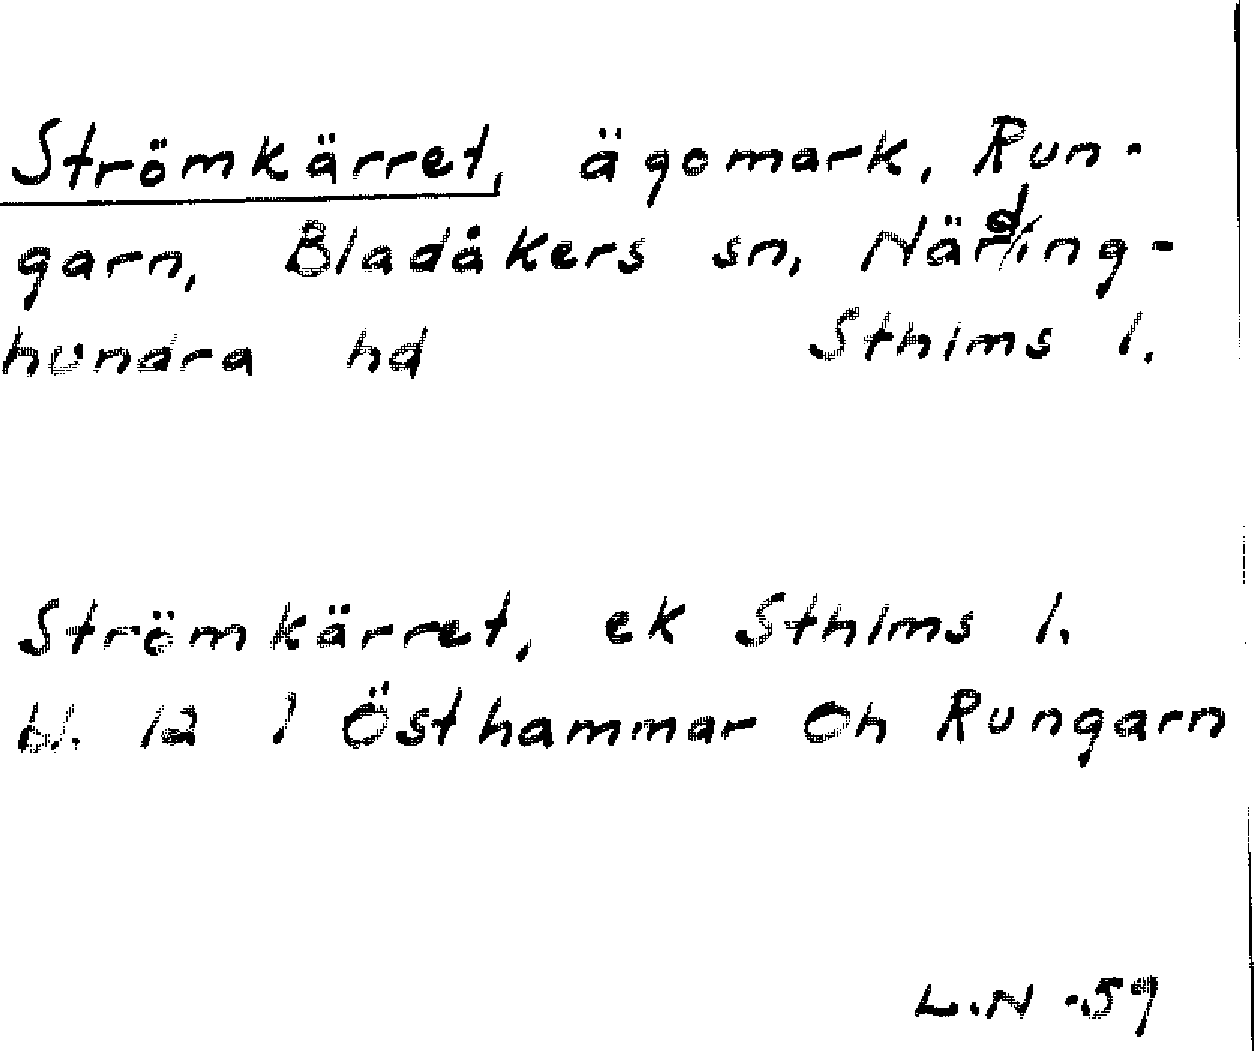 Strömkärret, ägomark, Run-
garn, Bladåkers sn, Närding-
hundra hd Sthlms l.
Strömkärret, ek Sthlms l.
bl. 12 l Östhammar Oh Rungarn
L.N -59